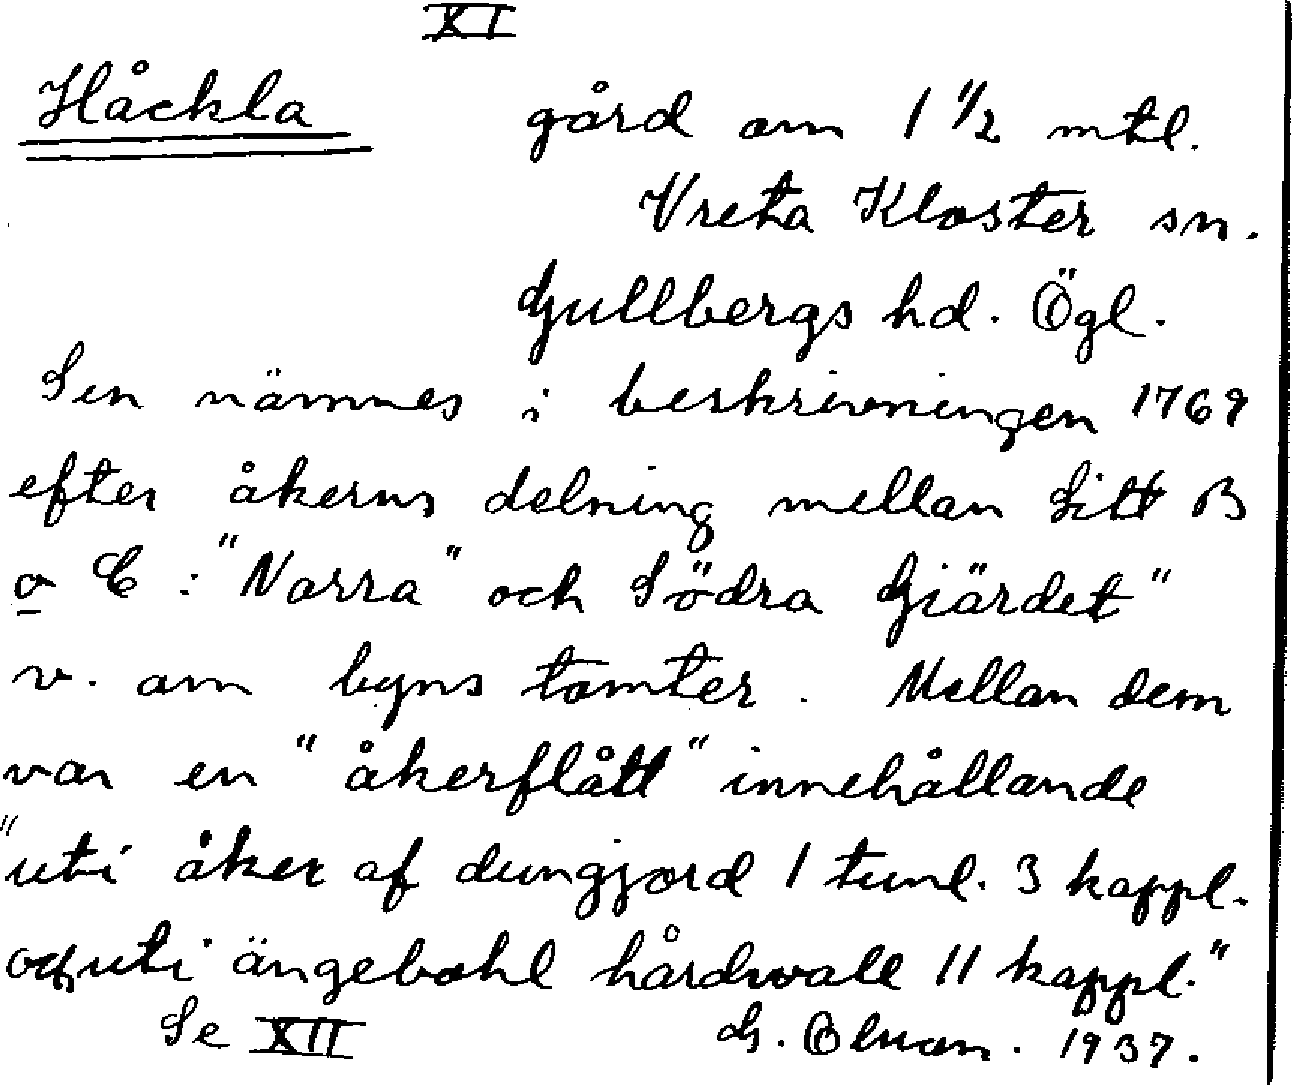 XI
Håckla gård om 1 1/2 mtl.
Vreta Kloster sn.
Gullbergs hd. Ögl.
Sen nämnes i beskrivningen 1769
efter åkerns delning mellan Litt B
o C : "Norra" och Södra Giärdet"
v. om byns tomter. Mellan dem
var en "åkerflått" innehållande
"uti åker af dungjord 1 tunl. 3 kappl.
och uti ängebohl hårdwall 11 kappl."
Se XII G. 1937.